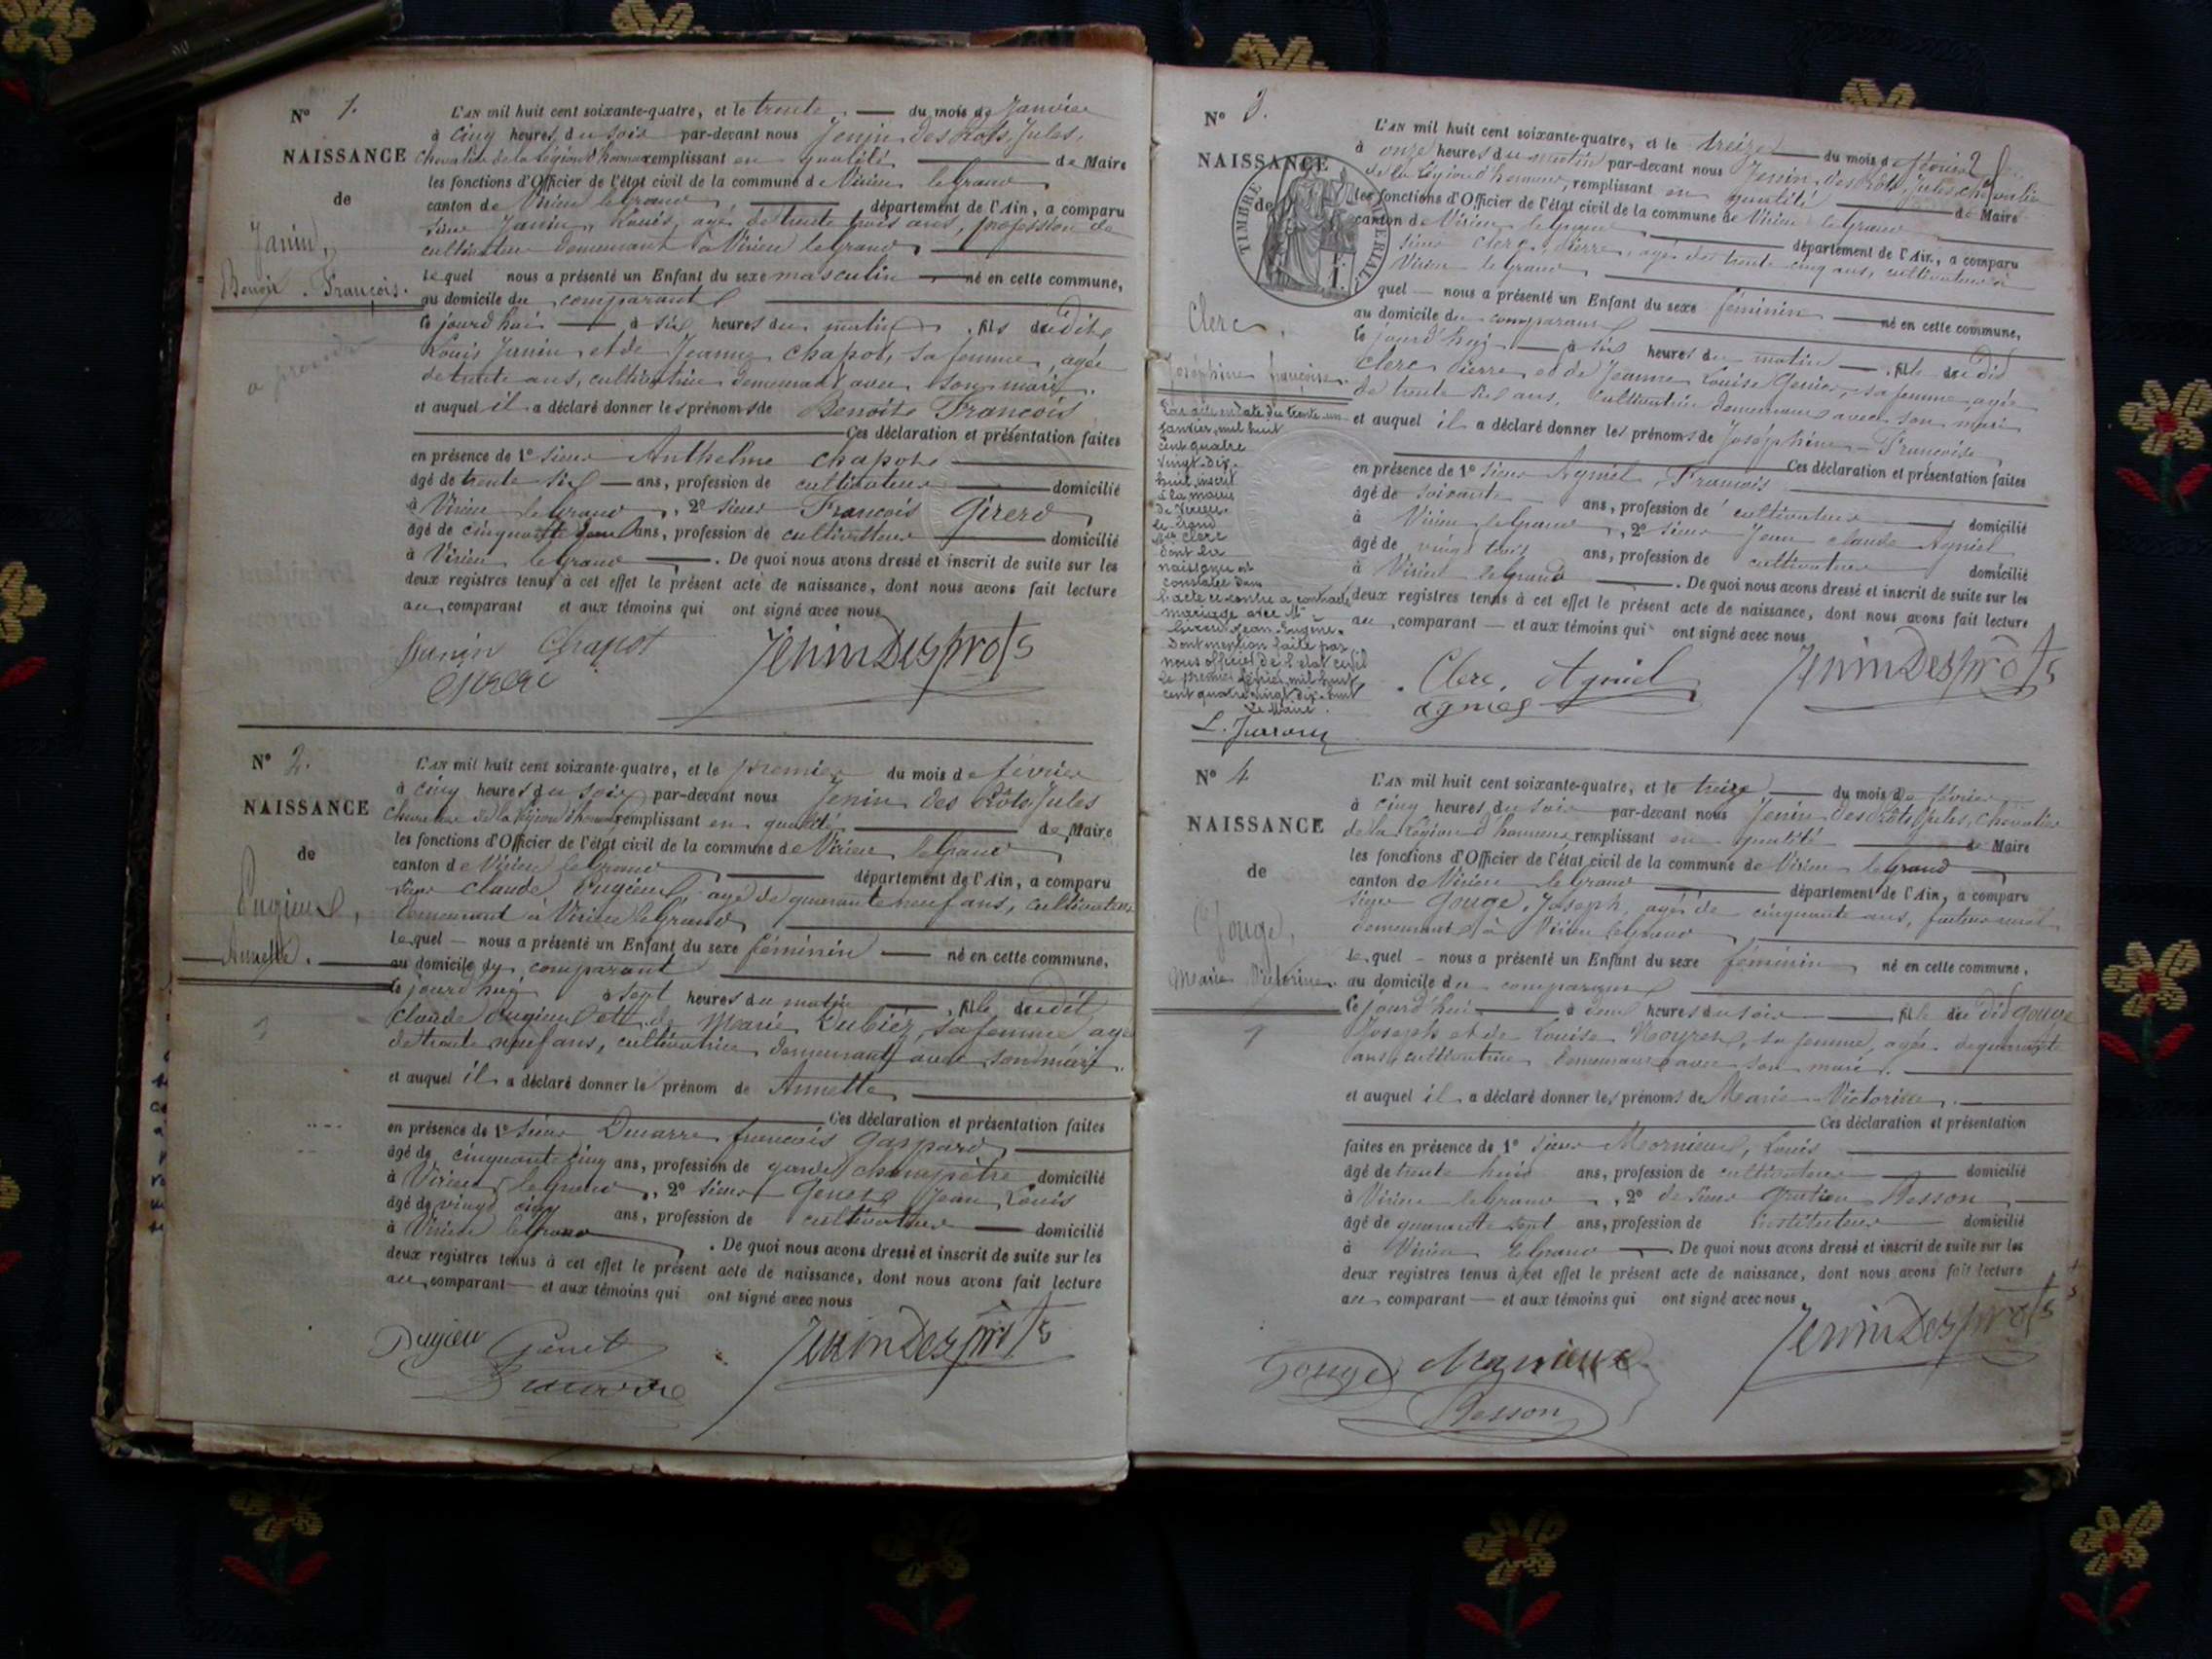 N° 1.
NAISSANCE
de
Janin,
Benoit François.
L'AN mil huit cent soixante-quatre, et le trente du mois de Janvier
à cinq heures du soir par-devant nous Jenin des Prôts, Jules,
chevalier de la Légion d'honneur remplissant en qualité de Maire
les fonctions d'Officier de l'état civil de la commune de Virieu le Grand
canton de Virieu le Grand, département de l'Ain, a comparu
sieur Janin, Louis, agé de trente trois ans, profession de
cultivateur demeurant à Virieu le Grand
lequel nous a présenté un Enfant du sexe masculin né en cette commune,
au domicile du comparant
ce jourd'hui à six heures du matin, fils dudit
Louis Janin et de Jeanne Chapot, sa femme, agée
de trente ans, cultivatrice demeurant avec son mari.
et auquel il a déclaré donner les prénoms de Benoit François
Ces déclaration et présentation faites
en présence de 1° sieur Anthelme Chapot
âgé de trente six ans, profession de cultivateur domicilié
à Virieu le Grand, 2° sieur François Girerd
âgé de cinquante ans, profession de cultivateur domicilié
à Virieu le Grand. De quoi nous avons dressé et inscrit de suite sur les
deux registres tenus à cet effet le présent acte de naissance, dont nous avons fait lecture
au comparant et aux témoins qui ont signé avec nous
Janin Chapot JeninDesprôts
Girerd
N° 2.
NAISSANCE
de
Pugieux,
Annette.
L'AN mil huit cent soixante-quatre, et le premier du mois de février
à cinq heures du soir par-devant nous Jenin des Prôts, Jules
chevalier de la Légion d'honneur remplissant en qualité de Maire
les fonctions d'Officier de l'état civil de la commune de Virieu le Grand
canton de Virieu le Grand, département de l'Ain, a comparu
sieur Claude Pugieux, agé de quarante neuf ans, cultivateur
demeurant à Virieu le Grand
lequel nous a présenté un Enfant du sexe féminin né en cette commune,
au domicile du comparant
ce jourd'hui à sept heures du matin, fille dudit
Claude Pugieux et de Marie Dubiéz, sa femme agée
de trente neuf ans, cultivatrice demeurant avec son mari.
et auquel il a déclaré donner le prénom de Annette
Ces déclaration et présentation faites
en présence de 1° sieur Ducarre françois Gaspard
âgé de cinquante cinq ans, profession de garde champêtre domicilié
à Virieu le Grand, 2° sieur Genet Jean Louis
âgé de vingt cinq ans, profession de cultivateur domicilié
à Virieu le Grand. De quoi nous avons dressé et inscrit de suite sur les
deux registres tenus à cet effet le présent acte de naissance, dont nous avons fait lecture
au comparant et aux témoins qui ont signé avec nous
Pugieu Genet JeninDesprôts
Ducarre
N° 3.
NAISSANCE
de
TIMBRE IMPERIAL
Clerc,
Joséphine françoise.
Par acte en date du trente-un
janvier, mil huit
cent quatre
vingt-dix-
huit, inscrit
à la mairie
de Virieu-
le-Grand
Clerc
dont la
naissance est
constatée dans
l'acte ci-contre a contracté
mariage avec Mr
Jean-Eugène.
Dont mention faite par
nous officier de l'état civil
le premier février mil huit
cent quatre vingt dix-huit
Le Maire.
L'AN mil huit cent soixante-quatre, et le treize du mois de février
à onze heures du matin par-devant nous Jenin, des Prôts, Jules chevalier
de la Légion d'honneur, remplissant en qualité de Maire
les fonctions d'Officier de l'état civil de la commune de Virieu le Grand
canton de Virieu le Grand département de l'Ain, a comparu
sieur Clerc, Pierre, agé de trente cinq ans, cultivateur à
Virieu le Grand
quel nous a présenté un Enfant du sexe féminin né en cette commune,
au domicile du comparant
ce jourd'hui à six heures du matin, fille dudit
Clerc Pierre et de Jeanne Louise, sa femme, agée
de trente six ans, cultivatrice demeurant avec son mari
et auquel il a déclaré donner les prénoms de Joséphine Françoise
Ces déclaration et présentation faites
en présence de 1° sieur Agniel, François
âgé de soixante ans, profession de cultivateur domicilié
à Virieu le Grand, 2° sieur Jean Claude Agniel
âgé de vingt trois ans, profession de cultivateur domicilié
à Virieu le Grand. De quoi nous avons dressé et inscrit de suite sur les
deux registres tenus à cet effet le présent acte de naissance, dont nous avons fait lecture
au comparant et aux témoins qui ont signé avec nous
Clerc. Agniel JeninDesprôts
N° 4
NAISSANCE
de
Gouge,
Marie Victorine.
L'AN mil huit cent soixante-quatre, et le treize du mois de février
à cinq heures du soir par-devant nous Jenin des Prôts, Jules, chevalier
de la Légion d'honneur, remplissant en qualité de Maire
les fonctions d'Officier de l'état civil de la commune de Virieu le Grand
canton de Virieu le Grand département de l'Ain, a comparu
sieur Gouge, Joseph, agé de cinquante ans, facteur rural
demeurant à Virieu le Grand
lequel nous a présenté un Enfant du sexe féminin né en cette commune,
au domicile du comparant
ce jourd'hui à deux heures du soir, fille du dit Gouge
Joseph et de Louise, sa femme, agée de quarante
ans, cultivatrice demeurant avec son mari.
et auquel il a déclaré donner les prénoms de Marie Victorine.
Ces déclaration et présentation
faites en présence de 1° sieur Mornieux, Louis
âgé de trente huit ans, profession de cultivateur domicilié
à Virieu le Grand, 2° de sieur Gratien Besson
âgé de quarante sept ans, profession de instituteur domicilié
à Virieu le Grand. De quoi nous avons dressé et inscrit de suite sur les
deux registres tenus à cet effet le présent acte de naissance, dont nous avons fait lecture
au comparant et aux témoins qui ont signé avec nous
Gouge Mornieux JeninDesprôts
Besson